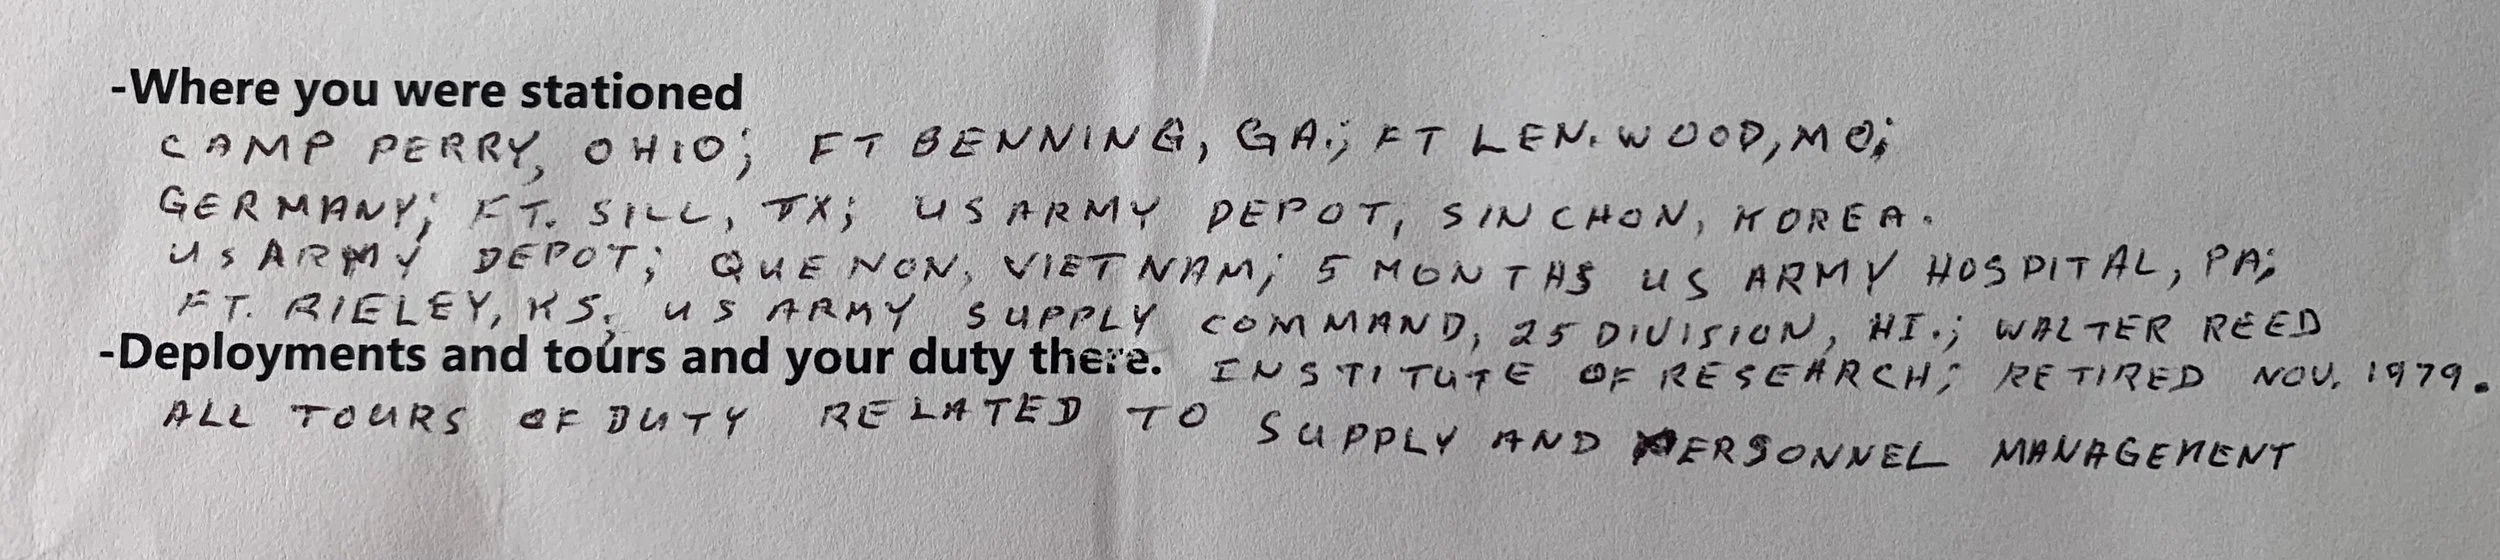 -Where you were stationed
CAMP PERRY, OHIO; FT BENNING, GA.; FT LEN. WOOD, MO;
GERMANY; FT. SILL, TX; US ARMY DEPOT, SINCHON, KOREA.
US ARMY DEPOT; QUE NON, VIET NAM; 5 MONTHS US ARMY HOSPITAL, PA;
FT. RIELEY, KS; US ARMY SUPPLY COMMAND, 25 DIVISION, HI.; WALTER REED
INSTITUTE OF RESEARCH; RETIRED NOV. 1979.
-Deployments and tours and your duty there.
ALL TOURS OF DUTY RELATED TO SUPPLY AND PERSONNEL MANAGEMENT